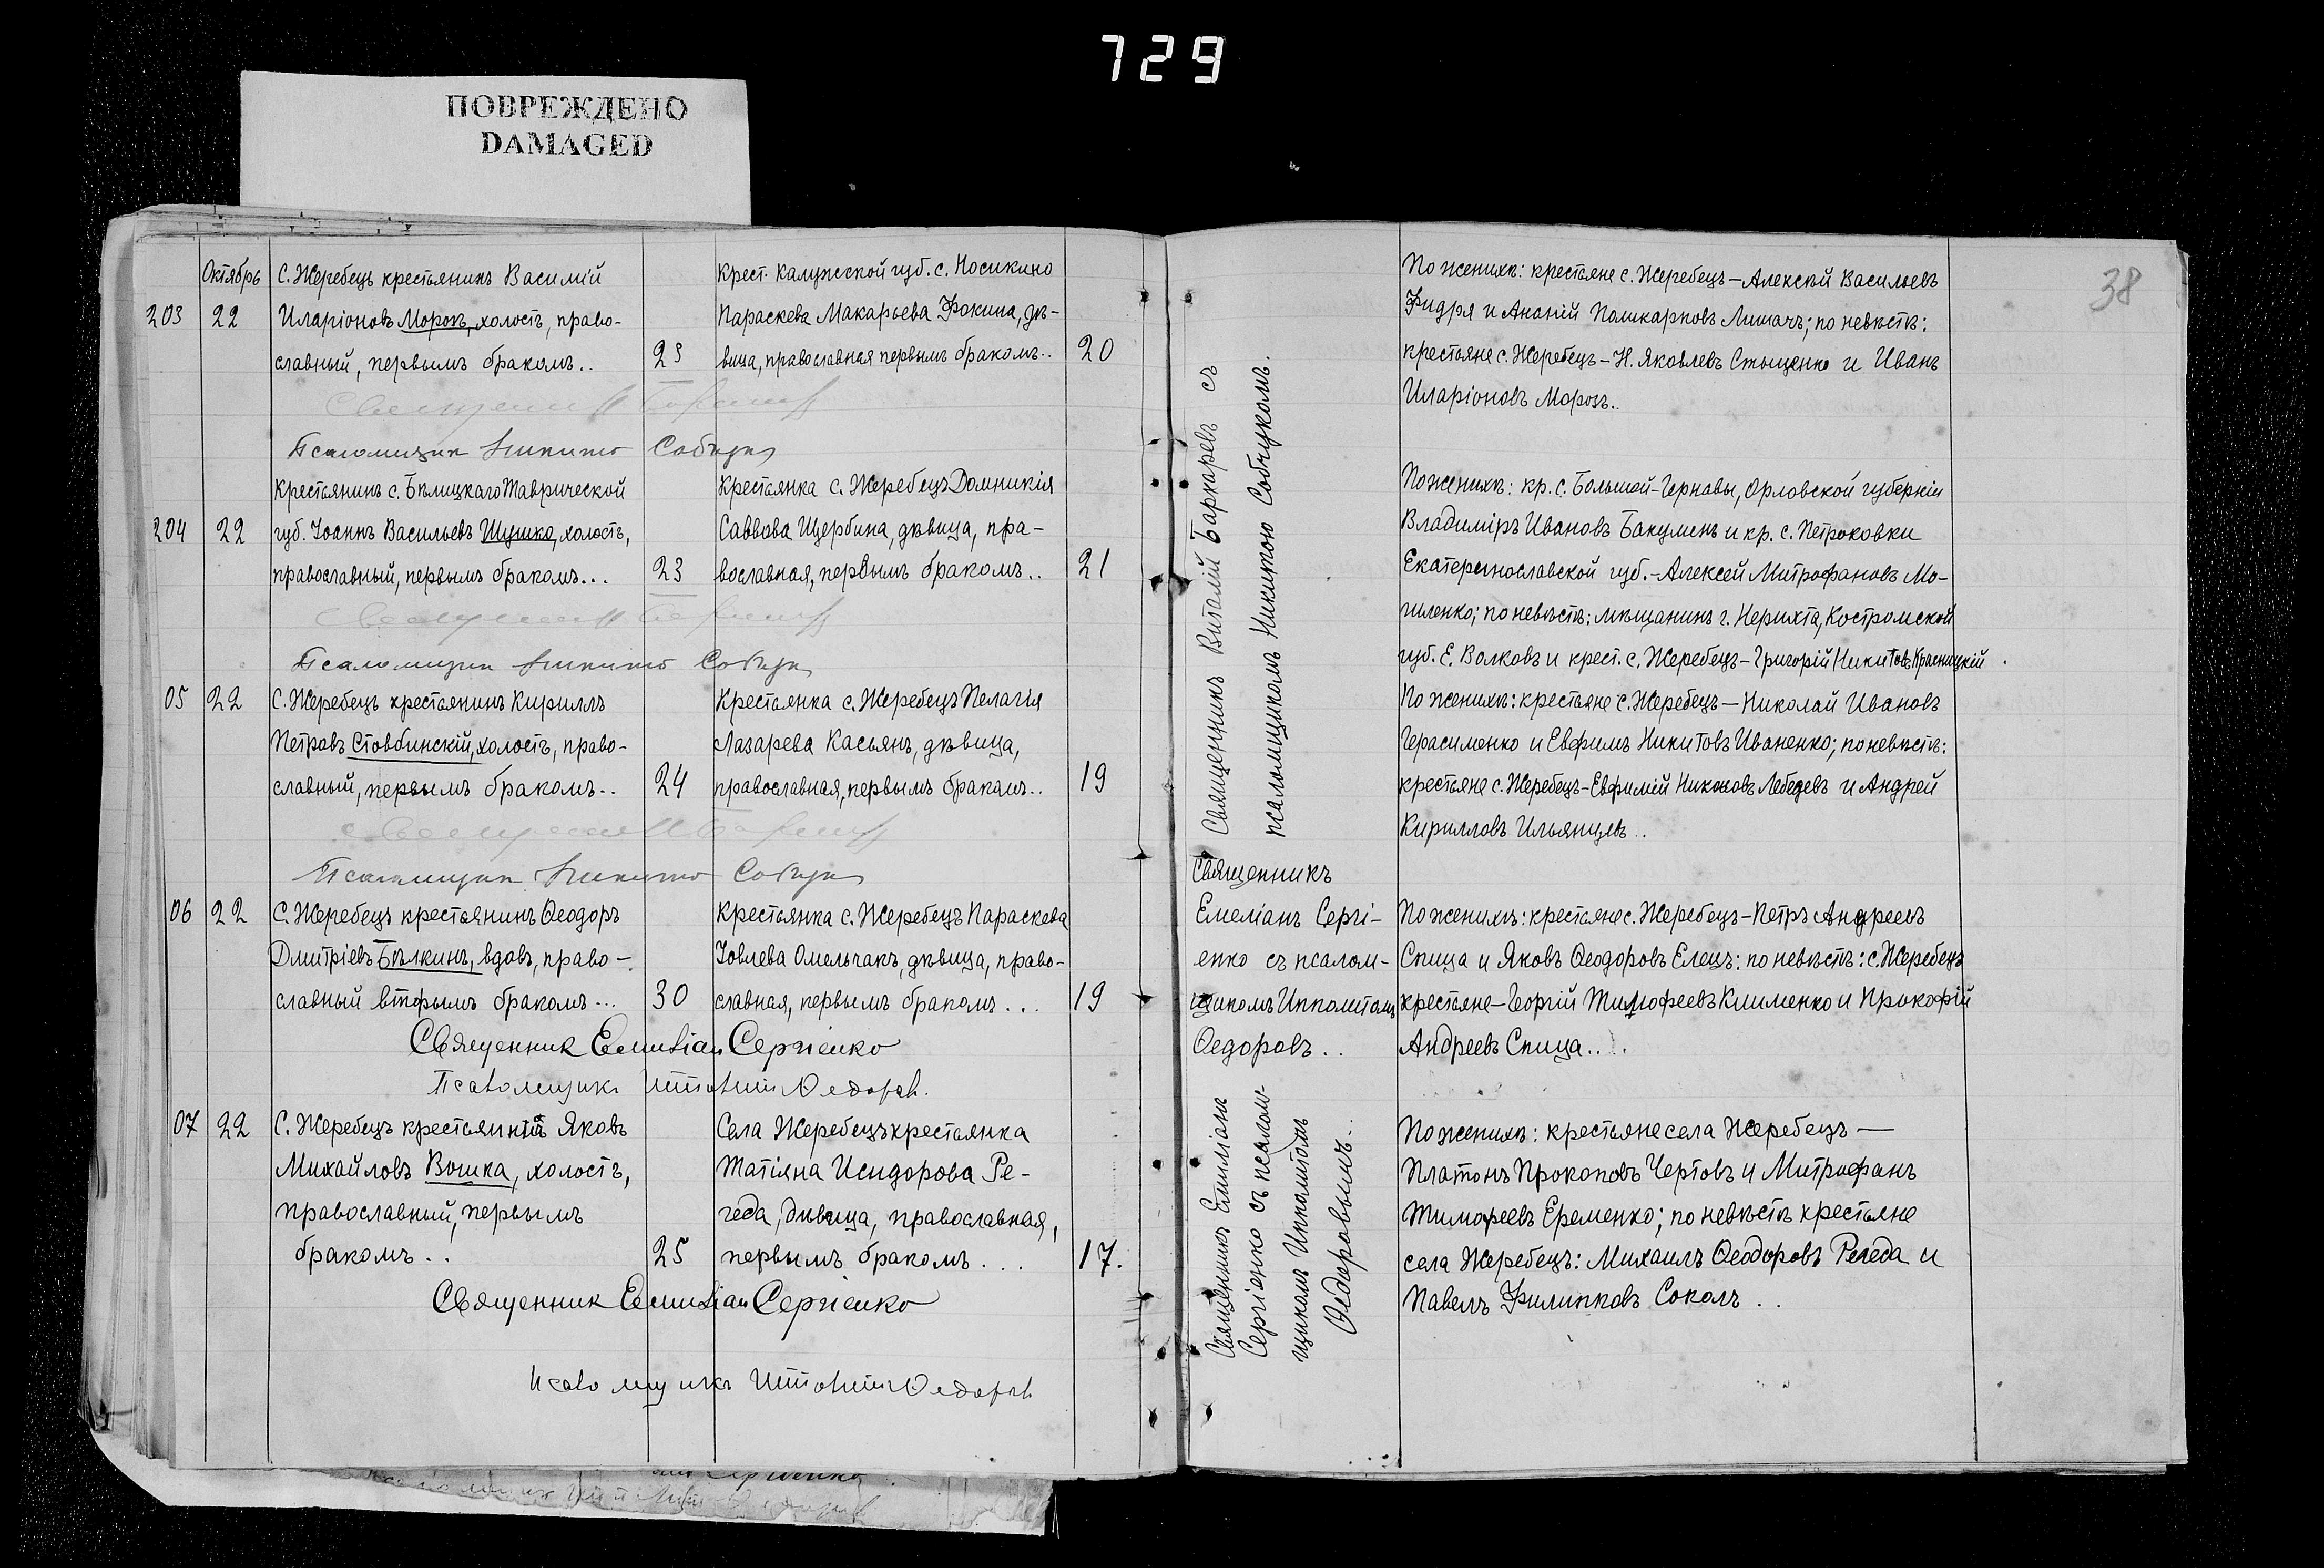 729
ПОВРЕЖДЕНО
DAMAGED
38
Октябрь
203 22
С. Жеребецъ крестьянинъ Василій
Иларіоновъ Морозъ, холостъ, право-
славный, первымъ бракомъ..
23
Крест. Калужской губ. с. Носикино
Параскева Макарьева Фокина, дѣ-
вица, православная первымъ бракомъ..
20
Псаломщикъ Никита Собчук
204 22
Крестьянинъ с. Бѣлицкаго Таврической
губ. Іоаннъ Васильевъ Шушко, холостъ,
православный, первымъ бракомъ...
23
Крестьянка с. Жеребецъ Домникія
Саввова Щербина, дѣвица, пра-
вославная, первымъ бракомъ..
21
Псаломщикъ Никита Собчук
05 22
С. Жеребецъ крестьянинъ Кириллъ
Петровъ Стовбинскій, холостъ, право-
славный, первымъ бракомъ..
24
Крестьянка с. Жеребецъ Пелагія
Лазарева Касьянъ, дѣвица,
православная, первымъ бракомъ..
19
Псаломщикъ Никита Собчук
06 22
С. Жеребецъ крестьянинъ Ѳеодоръ
Дмитріевъ Бѣлкинъ, вдовъ, право-
славный вторымъ бракомъ...
30
Крестьянка с. Жеребецъ Параскева
Іовлева Омельчакъ, дѣвица, право-
славная, первымъ бракомъ...
19
Священник Емилиан Сергіенко
Псаломщикъ Ипполит Ѳедоров.
07 22
С. Жеребецъ крестьянинъ Яковъ
Михайловъ Вошка, холостъ,
православный, первымъ
бракомъ..
25
Села Жеребецъ крестьянка
Татіяна Исидорова Ре-
геда, дѣвица, православная,
первымъ бракомъ...
17.
Священник Емилиан Сергіенко
Псаломщикъ Ипполит Ѳедоров
Священникъ Виталій Баркаревъ съ
псаломщикомъ Никитою Собчукомъ.
Священникъ
Емеліанъ Сергі-
енко съ псалом-
щикомъ Ипполитомъ
Ѳедоровъ..
Священникъ Емиліанъ
Сергіенко съ псалом-
щикомъ Ипполитомъ
Ѳедоровымъ...
По женихѣ: крестьяне с. Жеребецъ—Алексѣй Васильевъ
Фидря и Ананій Поликарповъ Лишачъ; по невѣстѣ:
крестьяне с. Жеребецъ—Н. Яковлевъ Стоценко и Иванъ
Иларіоновъ Морозъ..
По женихѣ: кр. с. Большой-Чернавы, Орловской губерніи
Владиміръ Ивановъ Бакулинъ и кр. с. Петроковки
Екатеринославской губ.-Алексей Митрофановъ Мо-
гиленко; по невѣстѣ: мѣщанинъ г. Нерихта, Костромской
губ. Е. Волковъ и крест. с. Жеребецъ-Григорій Никитовъ Красницкій
По женихѣ: крестьяне с. Жеребецъ—Николай Ивановъ
Герасименко и Евфимъ Никитовъ Иваненко; по невѣстѣ:
крестьяне с. Жеребецъ-Евфимій Никоновъ Лебедевъ и Андрей
Кирилловъ Ильянцевъ..
По женихѣ: крестьяне с. Жеребецъ-Петръ Андреевъ
Спица и Яковъ Ѳеодоровъ Елецъ: по невѣстѣ: с. Жеребецъ
крестьяне—Георгій Тимофеевъ Клименко и Прокофій
Андреевъ Спица....
По женихѣ: крестьяне села Жеребецъ—
Платонъ Прокоповъ Чертовъ и Митрофанъ
Тимофеевъ Еременко; по невѣстѣ крестьяне
села Жеребецъ: Михаилъ Ѳеодоровъ Регеда и
Павелъ Филипповъ Соколъ..